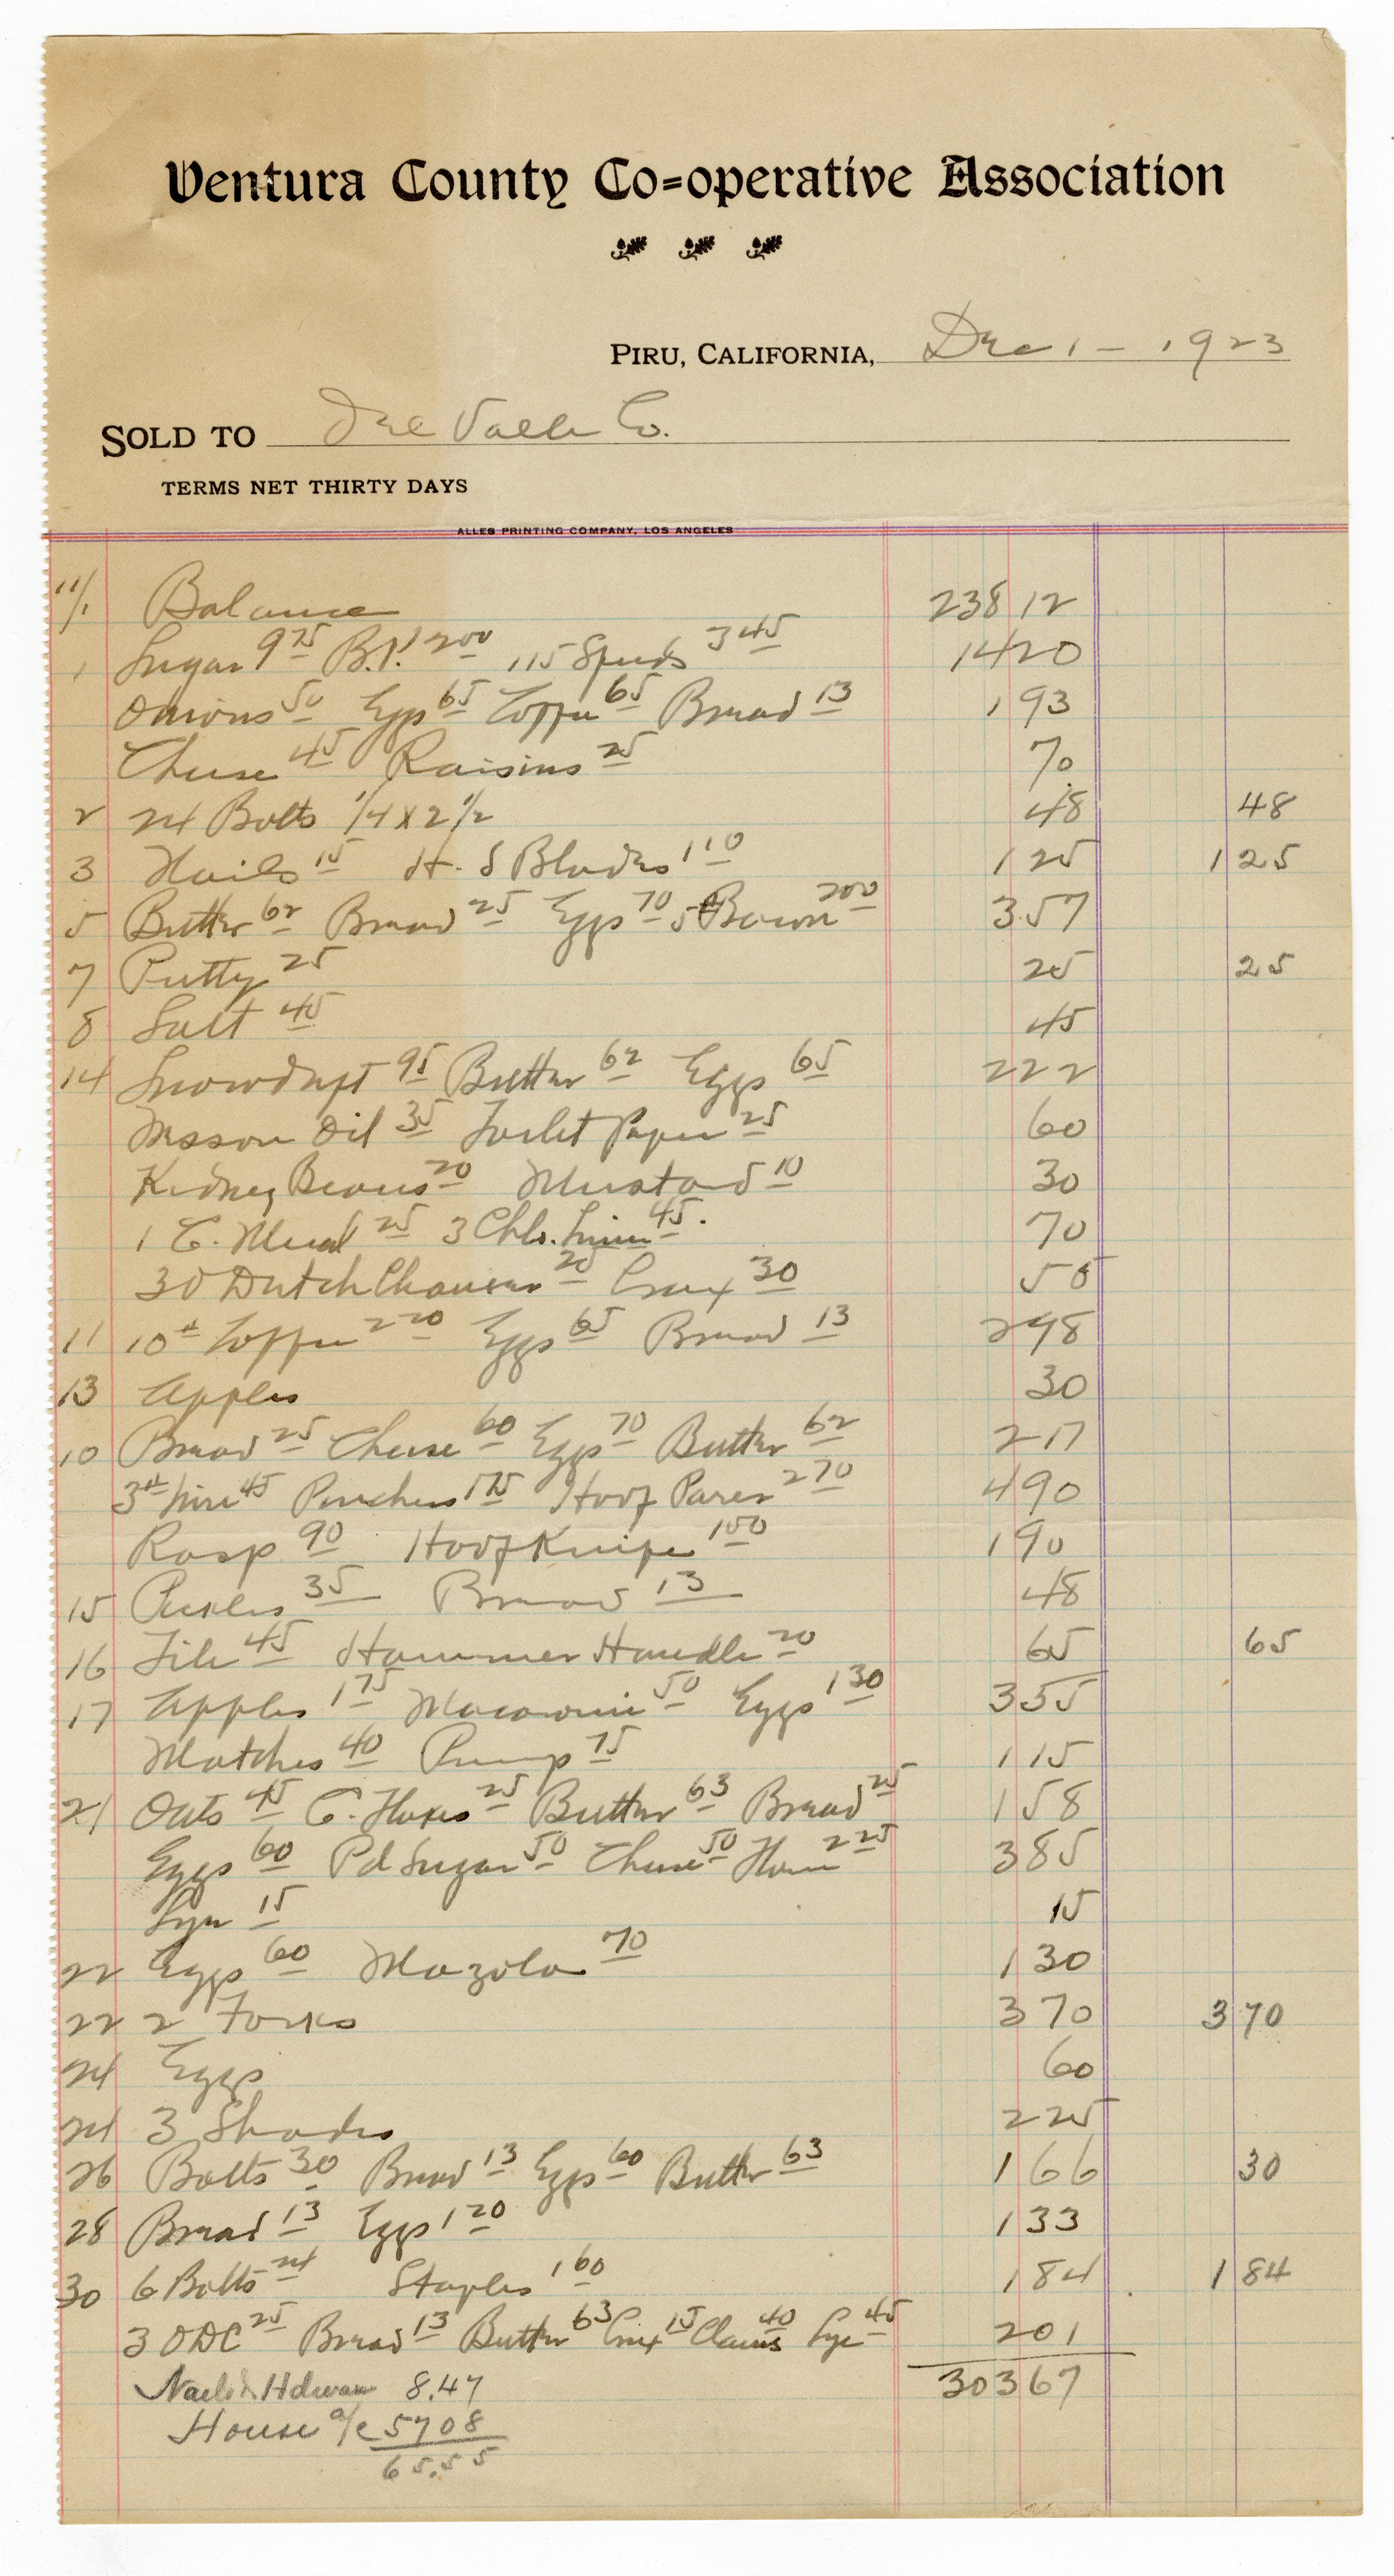 Ventura County Co=operative Association
PIRU, CALIFORNIA, Dec 1 - 1923
SOLD TO Del Valle Co.
TERMS NET THIRTY DAYS
ALLES PRINTING COMPANY, LOS ANGELES
11/1 Balance 238 12
1 Sugar 9 75 B.P. 2 00 115 Spuds 3 45 14 20
Onions 50 Eggs 65 Coffee 65 Bread 13 1 93
Cheese 45 Raisins 25 70
2 24 Bolts 1/4 x 2 1/2 48 48
3 Nails 15 H. S Blades 1 10 1 25 1 25
5 Butter 62 Bread 25 Eggs 70 5# Bacon 2 00 3 57
7 Putty 25 25 25
8 Salt 45 45
14 Snowdrift 95 Butter 62 Eggs 65 2 22
Wesson Oil 35 Toilet Paper 25 60
Kidney Beans 20 Mustard 10 30
1 C. Meal 25 3 Chlo. Lime 45 70
3 O Dutch Cleanser 25 Crax 30 55
11 10# Coffee 2 20 Eggs 65 Bread 13 2 98
13 Apples 30
10 Bread 25 Cheese 60 Eggs 70 Butter 62 2 17
3# Wire 45 Pinchers 1 75 Hoof Parer 2 70 4 90
Rasp 90 Hoof Knife 1 00 1 90
15 Pickles 35 Bread 13 48
16 File 45 Hammer Handle 20 65 65
17 Apples 1 75 Macaroni 50 Eggs 1 30 3 55
Matches 40 Pump 75 1 15
21 Oats 45 C. Flakes 25 Butter 63 Bread 25 1 58
Eggs 60 Pd Sugar 50 Cheese 50 Ham 2 25 3 85
Lye 15 15
22 Eggs 60 Mazola 70 1 30
22 2 Forks 3 70 3 70
24 Eggs 60
24 3 Shades 2 25
26 Bolts 30 Bread 13 Eggs 60 Butter 63 1 66 30
28 Bread 13 Eggs 1 20 1 33
30 6 Bolts 24 Staples 1 60 1 84 1 84
3 O D C 25 Bread 13 Butter 63 Crax 15 Clams 40 Lye 45 2 01
Nails & Hdware 8.47 303 67
House a/c 57 08
65.55